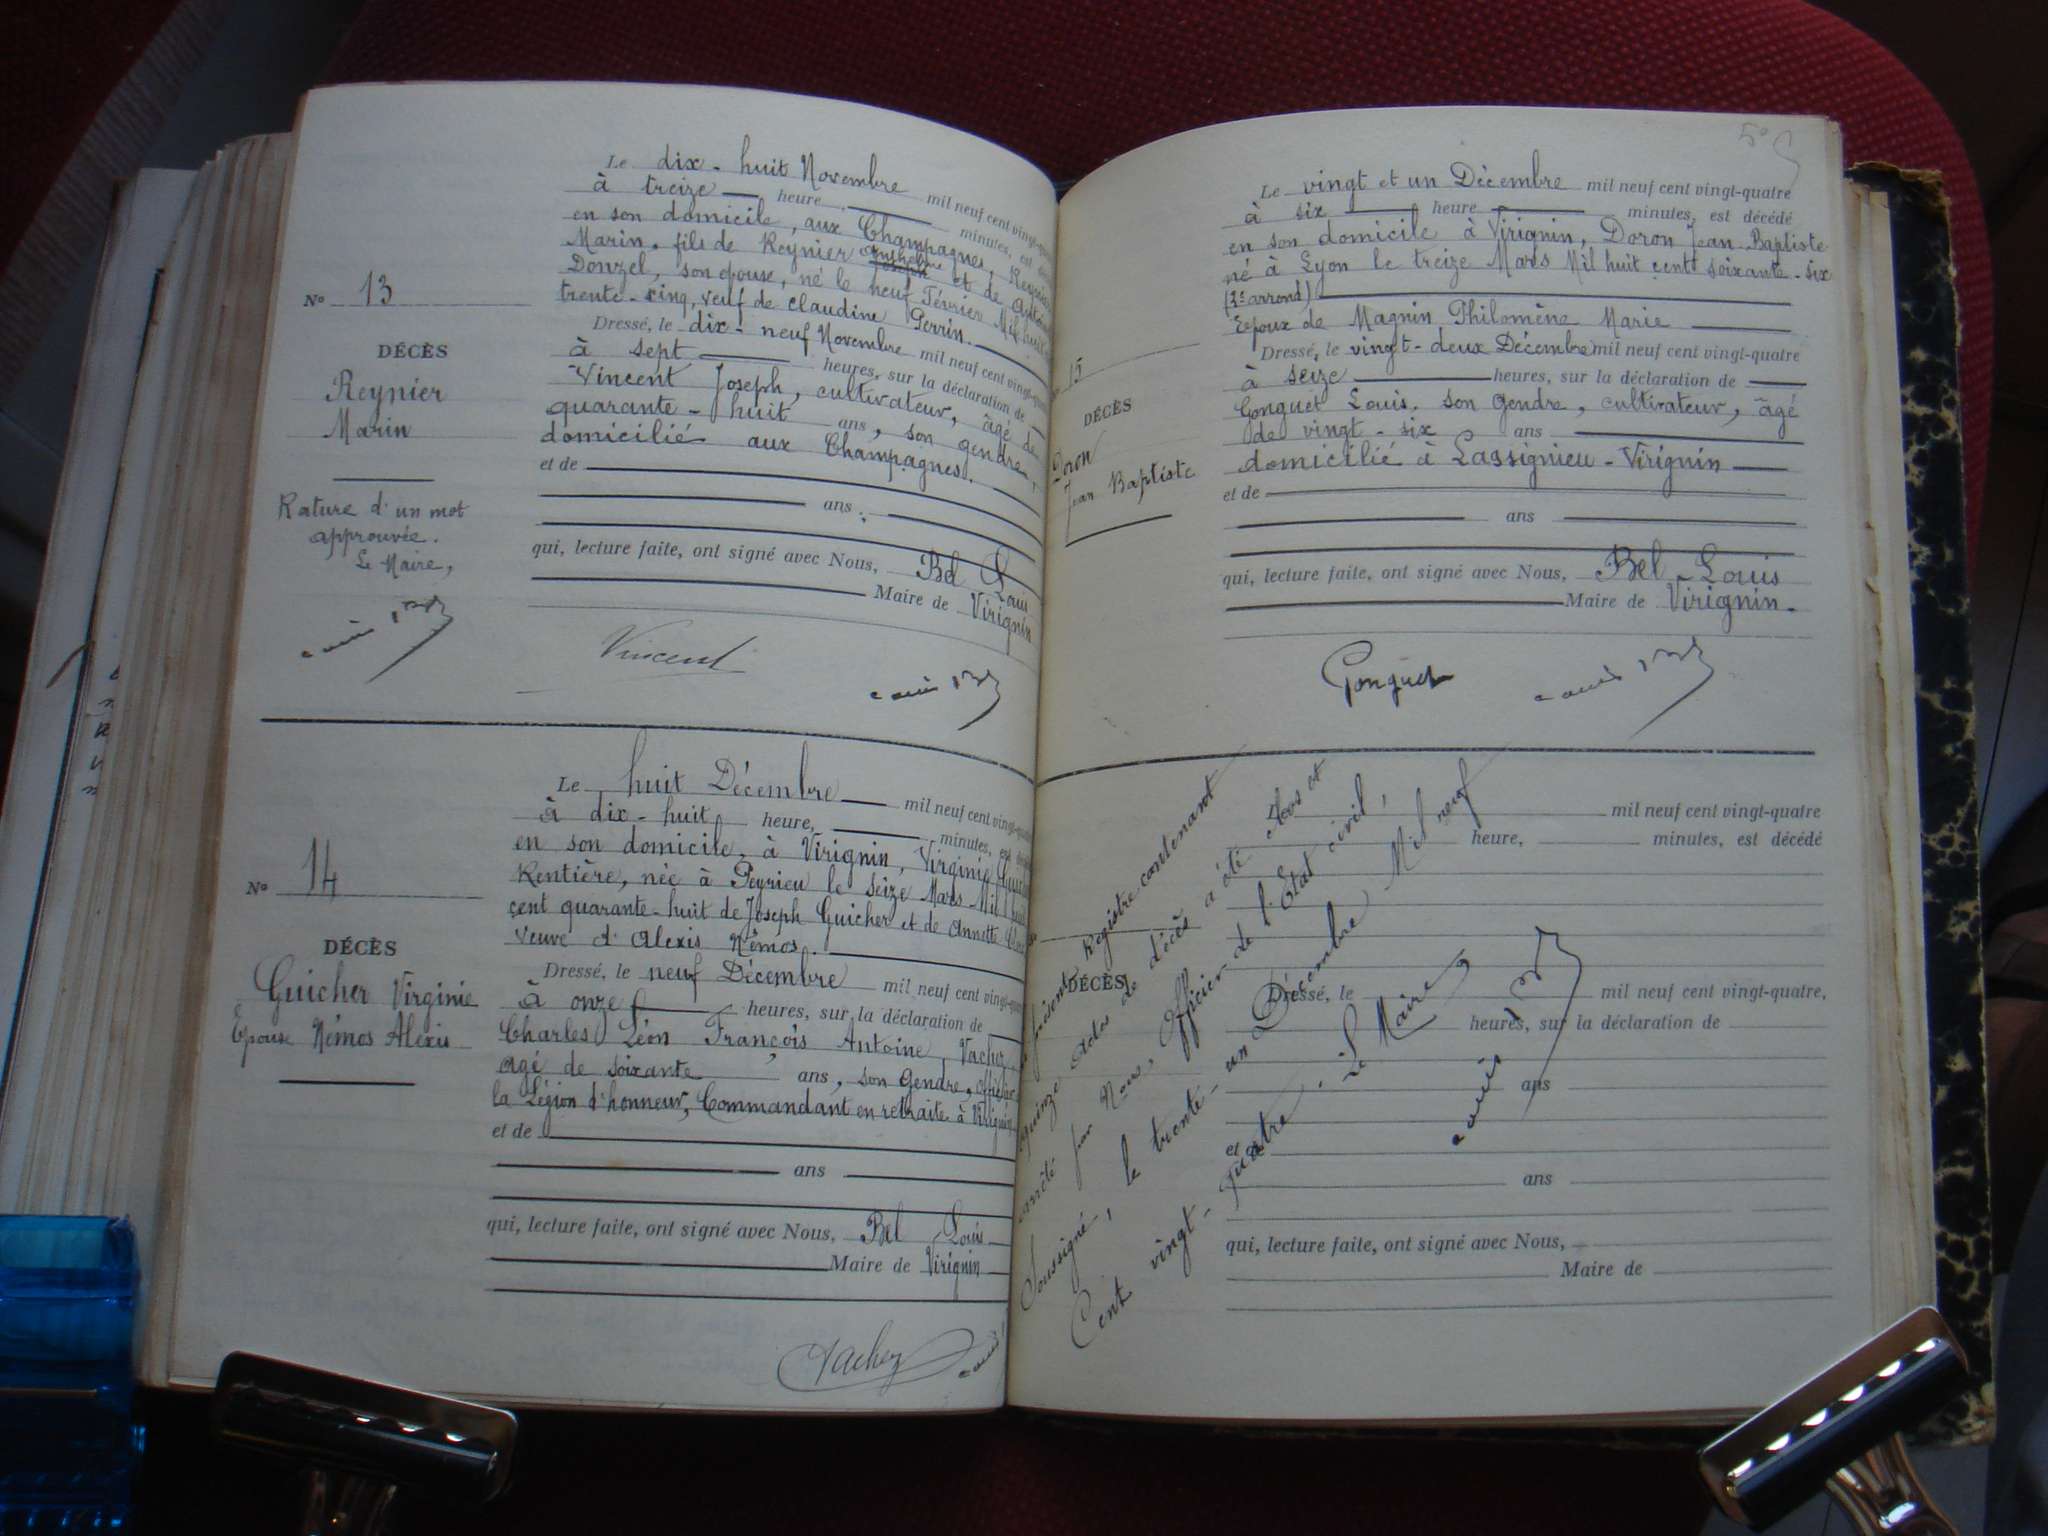 Le dix-huit Novembre mil neuf cent vingt-
à treize heure, minutes, est
en son domicile, aux Champagnes, Reynier
Marin, fils de Reynier Anthelme Joseph et de
Donzel, son épouse, né le neuf Février Mil huit
trente-cinq, veuf de Claudine Perrin.
Dressé, le dix-neuf Novembre mil neuf cent vingt-
à sept heures, sur la déclaration de
Vincent Joseph, cultivateur, âgé de
quarante-huit ans, son gendre,
domicilié aux Champagnes.
et de
ans
qui, lecture faite, ont signé avec Nous, Bel Louis
Maire de Virignin
No 13
DÉCÈS
Reynier
Marin
Rature d'un mot
approuvée.
Le Maire,
Vincent
Le huit Décembre mil neuf cent vingt-
à dix-huit heure, minutes, est
en son domicile, à Virignin, Virginie
Rentière, née à Peyrieu le seize Mars Mil huit
cent quarante-huit de Joseph Guicher et de Annette
veuve d'Alexis Némos.
Dressé, le neuf Décembre mil neuf cent vingt-
à onze heures, sur la déclaration de
Charles Léon François Antoine, Vacher,
agé de soixante ans, son Gendre, officier
la Légion d'honneur, Commandant en retraite à Virignin
et de
ans
qui, lecture faite, ont signé avec Nous, Bel Louis
Maire de Virignin
No 14
DÉCÈS
Guicher Virginie
Epouse Némos Alexis
Vacher
Le vingt et un Décembre mil neuf cent vingt-quatre
à six heure minutes, est décédé
en son domicile à Virignin, Doron Jean Baptiste
né à Lyon le treize Mars Mil huit cent soixante-six
Epoux de Magnin Philomène Marie
Dressé, le vingt-deux Décembre mil neuf cent vingt-quatre
à seize heures, sur la déclaration de
Gonguet Louis, son gendre, cultivateur, âgé
de vingt-six ans
domicilié à Lassignieu-Virignin
et de
ans
qui, lecture faite, ont signé avec Nous, Bel Louis
Maire de Virignin.
15
DÉCÈS
Doron
Jean Baptiste
Gonguet
présent Registre contenant
quinze actes de décès a été clos et
arrêté par Nous, Officier de l'État civil,
Soussigné, le trente-un Décembre Mil neuf
Cent vingt-quatre. Le Maire
mil neuf cent vingt-quatre
heure, minutes, est décédé
DÉCÈS
Dressé, le mil neuf cent vingt-quatre,
heures, sur la déclaration de
ans
et de
ans
qui, lecture faite, ont signé avec Nous,
Maire de